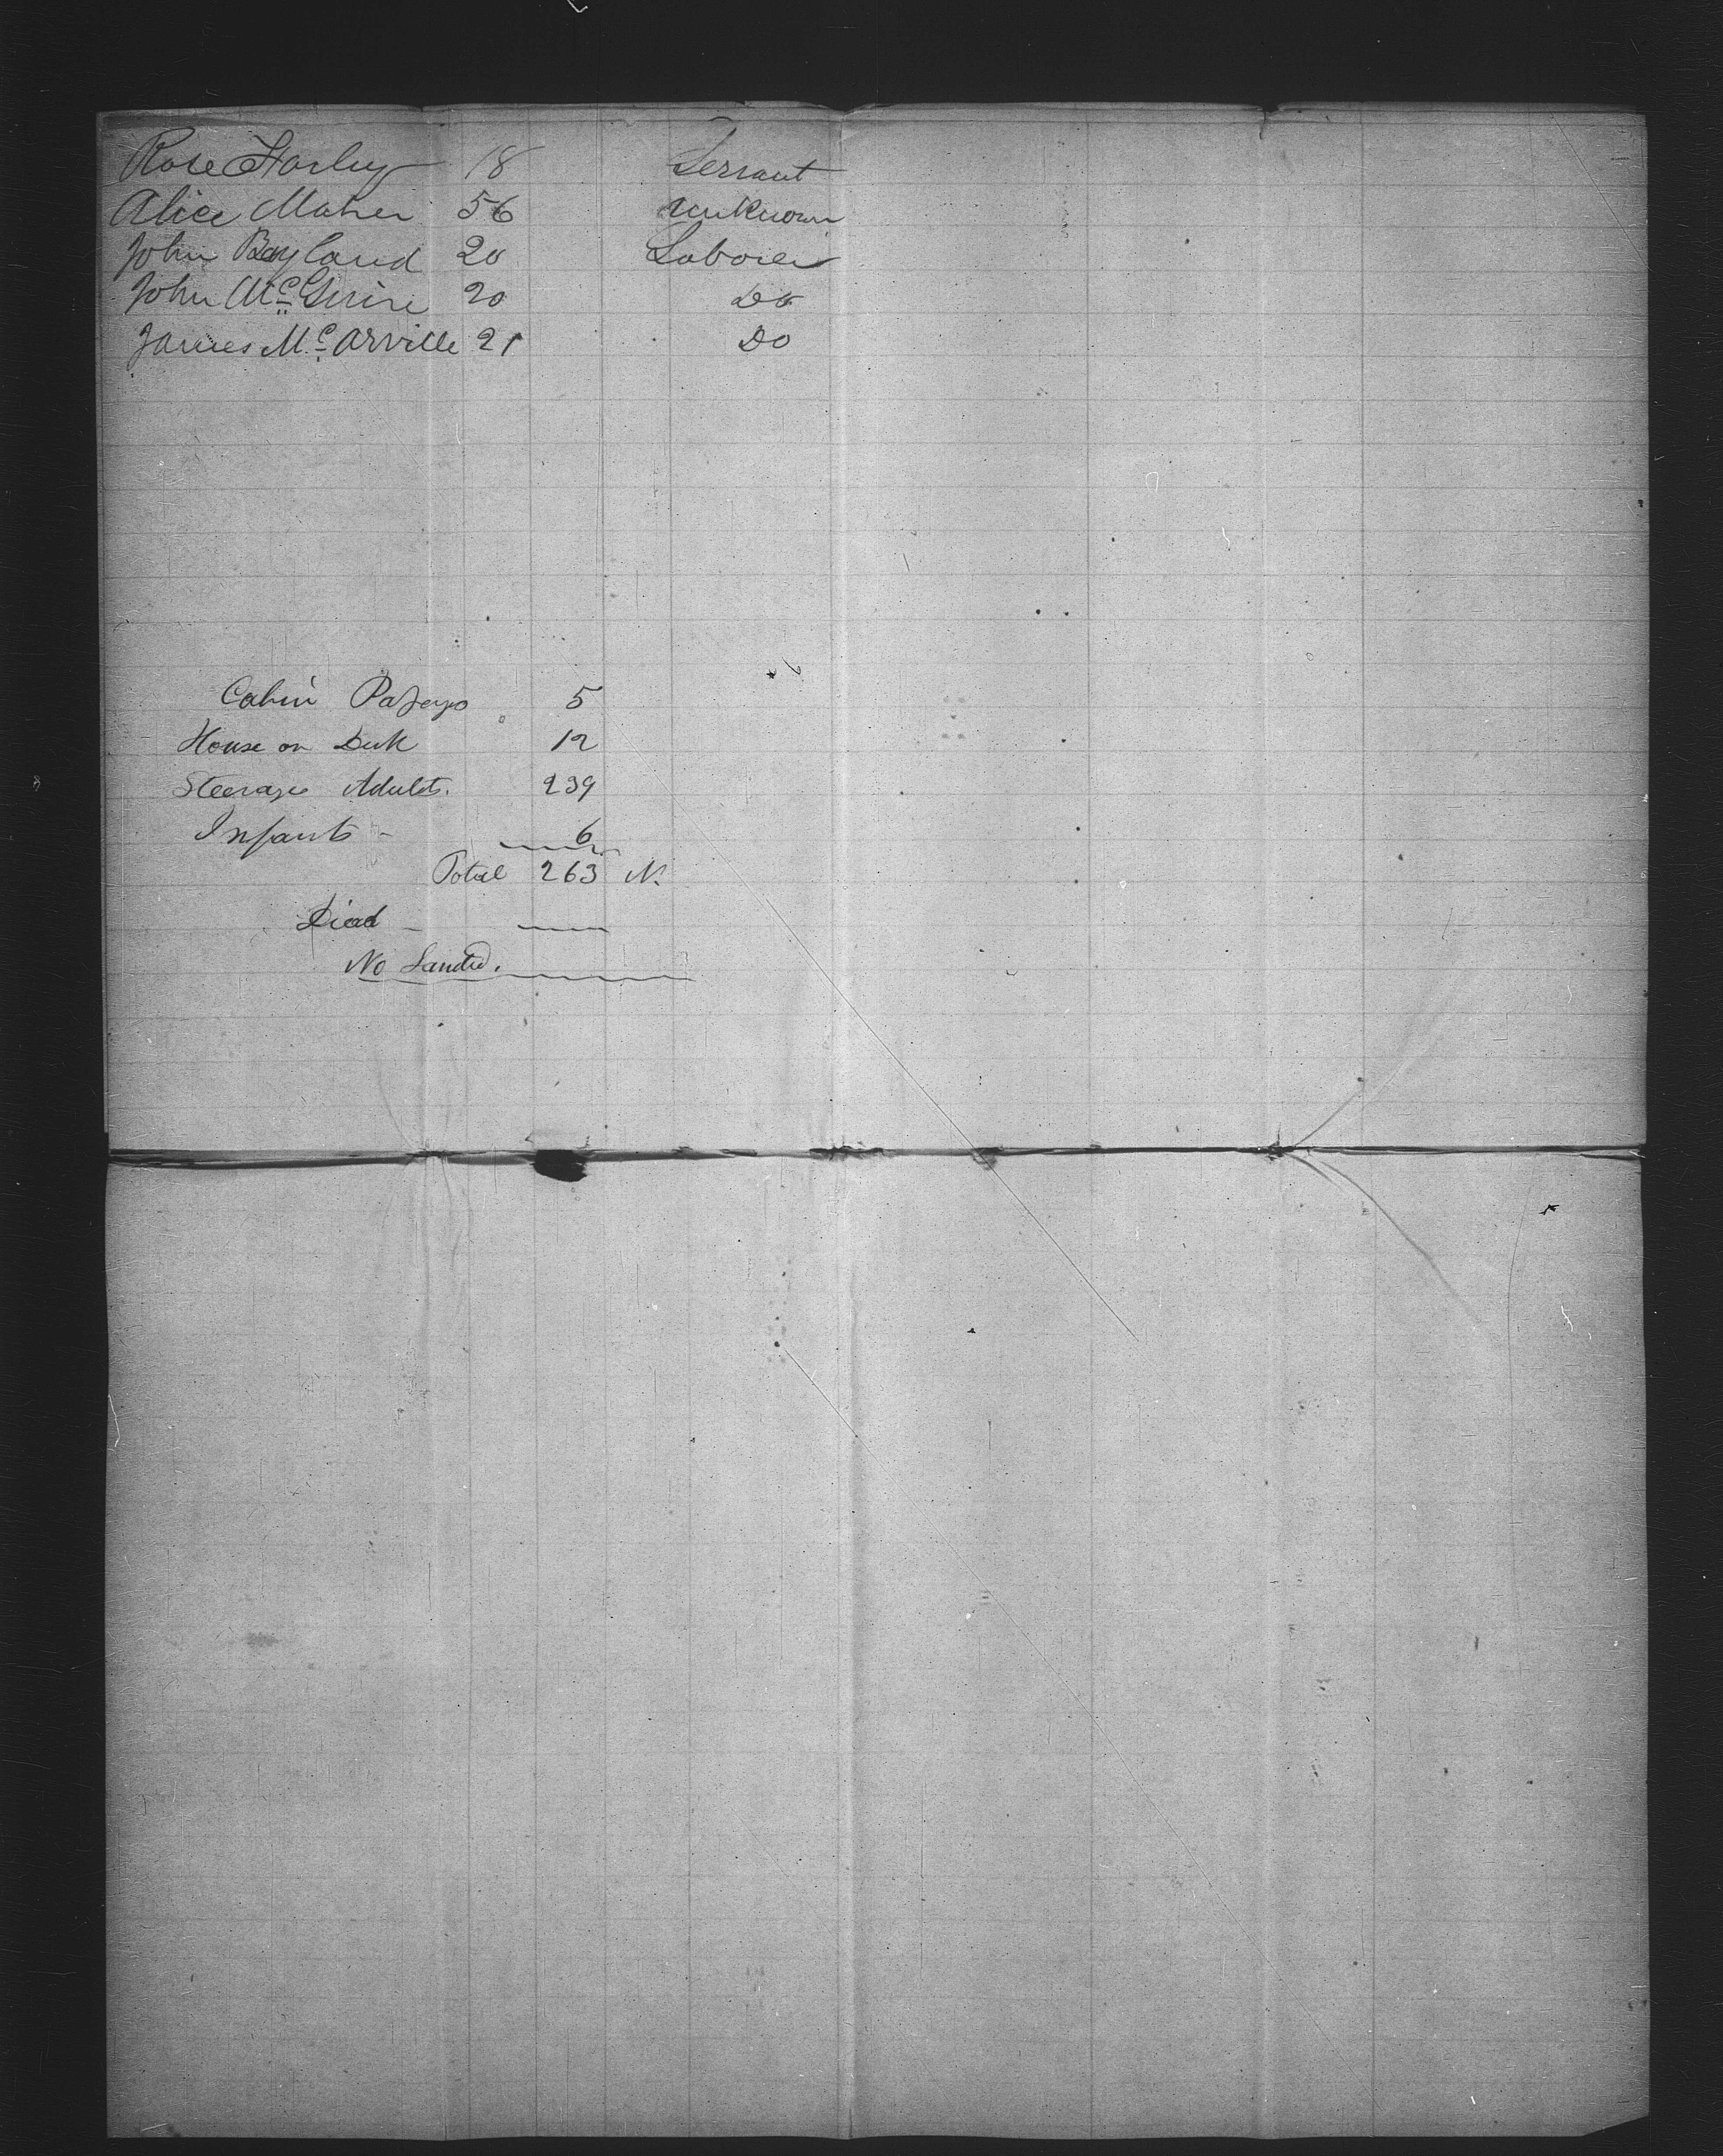 Rose Farley 18 Servant
Alice Maher 56 Unknown
John Bayland 20 Laborer
John McGuire 20 Do
James McArville 21 Do
Cabin 5
House on Deck 12
Steerage Adults. 239
Infants - 6
Total 263
Died - —
No Landed. —